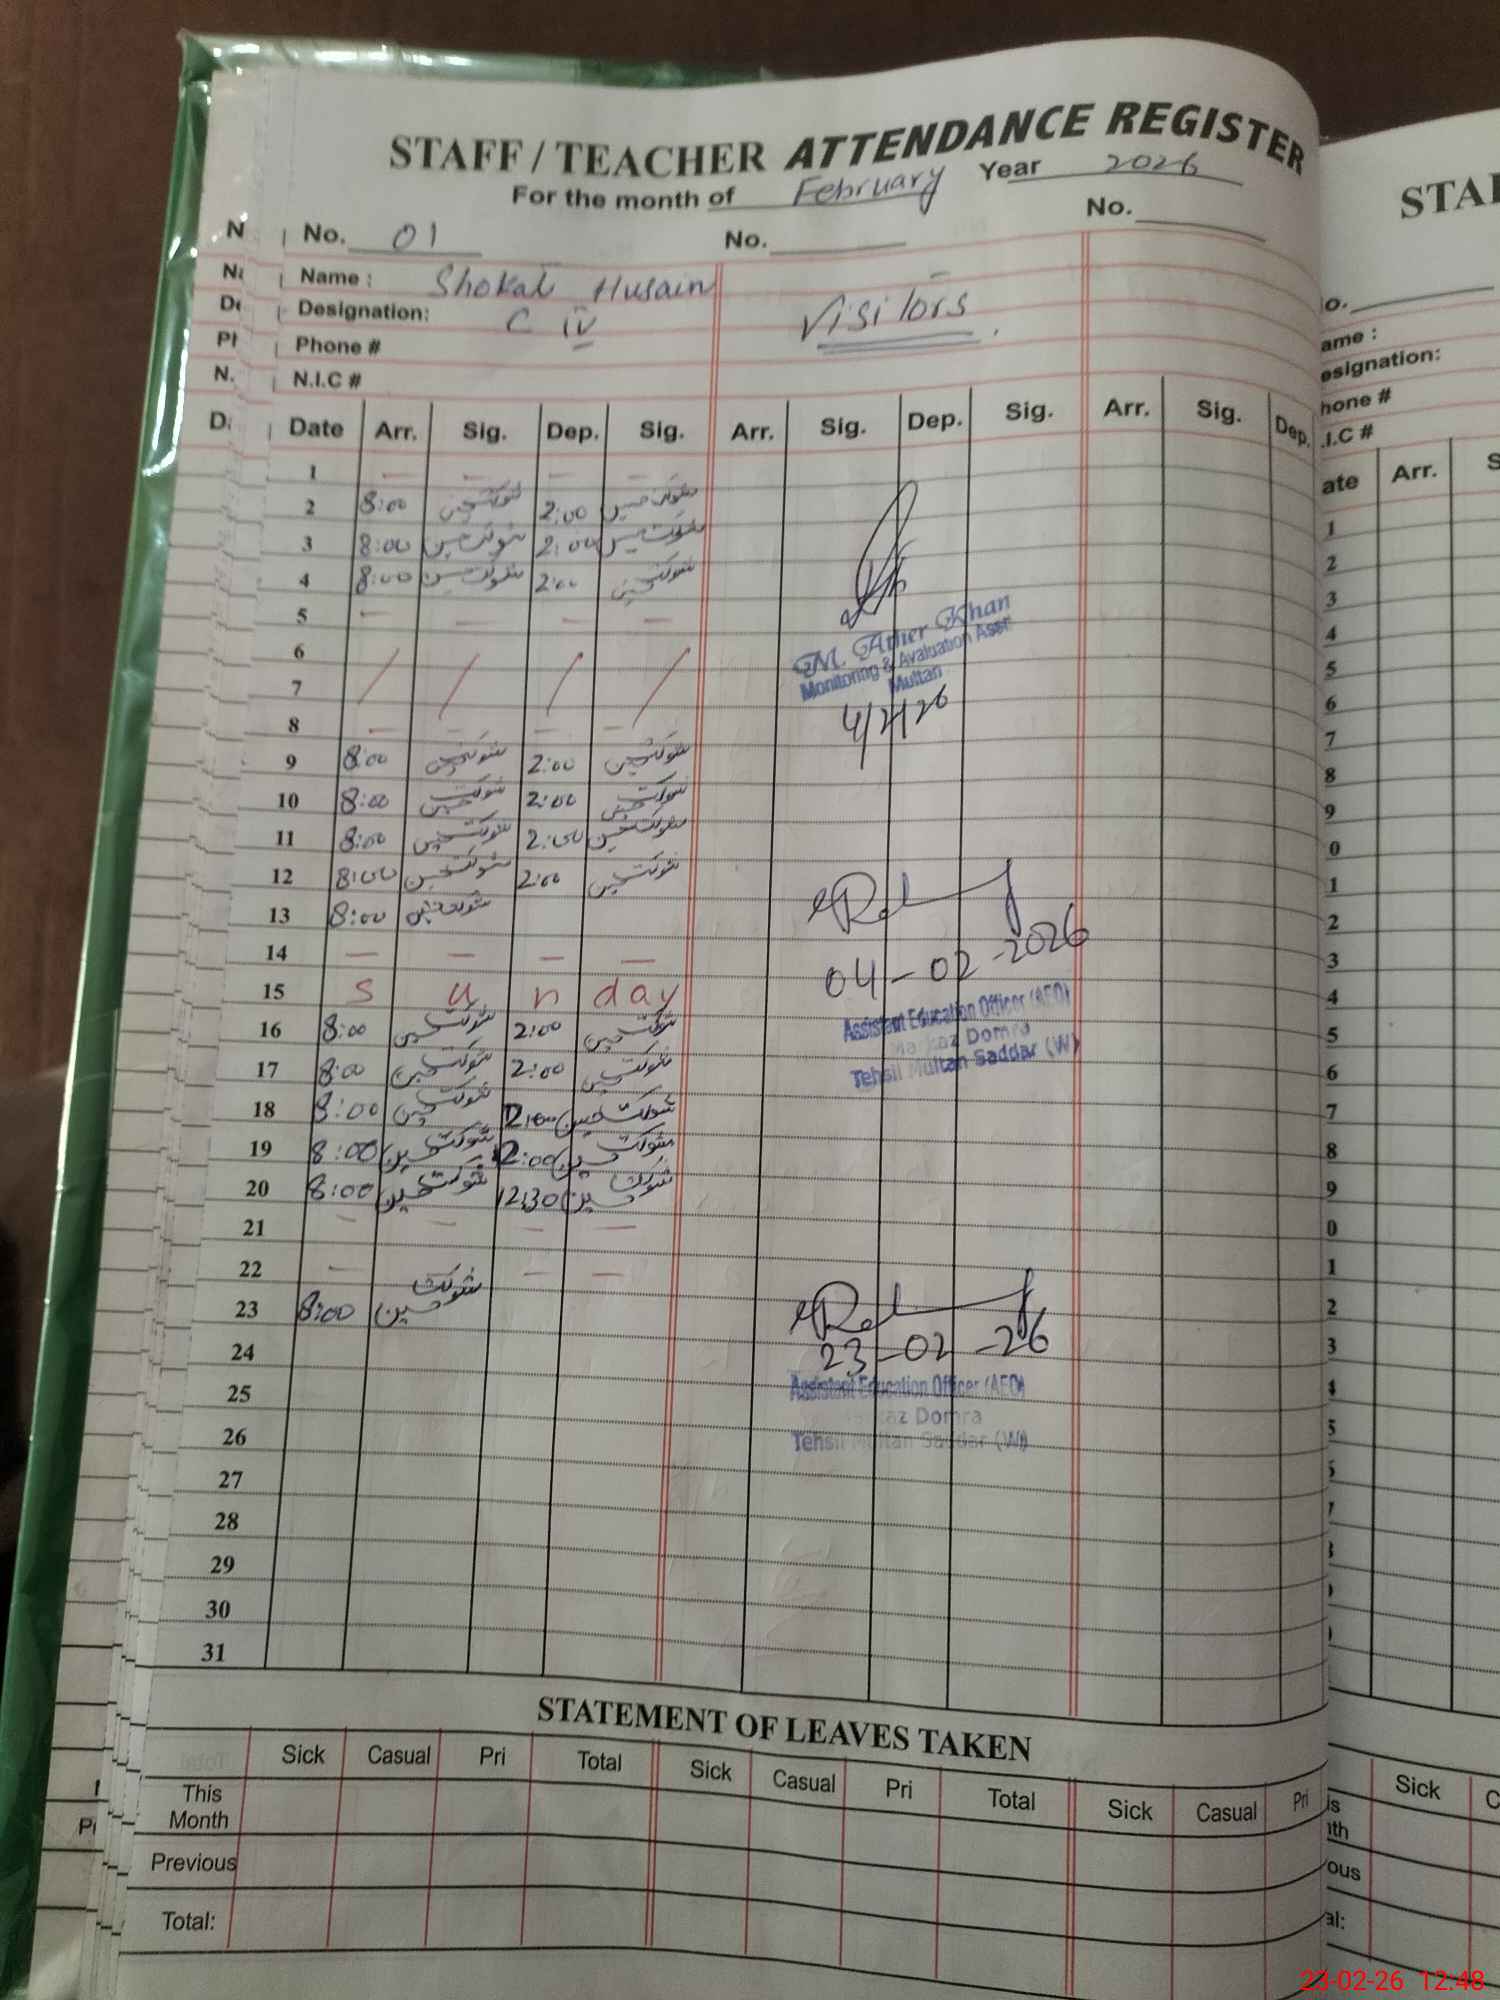 STAFF / TEACHER ATTENDANCE REGISTER
For the month of February Year 2026
No. 01 No. No.
Name : Shokat Husain Visitors
Designation: C iv
Phone #
N.I.C #
Date Arr. Sig. Dep. Sig. Arr. Sig. Dep. Sig. Arr. Sig. Dep.
1 — — — —
2 8:00 شوکت حسین 2:00 شوکت حسین
3 8:00 شوکت حسین 2:00 شوکت حسین
4 8:00 شوکت حسین 2:00 شوکت حسین
5 — — — —
6
7
8 — — — —
9 8:00 شوکت حسین 2:00 شوکت حسین
10 8:00 شوکت حسین 2:00 شوکت حسین
11 8:00 شوکت حسین 2:00 شوکت حسین
12 8:00 شوکت حسین 2:00 شوکت حسین
13 8:00 شوکت حسین
14 — — — —
15 S u n day
16 8:00 شوکت حسین 2:00 شوکت حسین
17 8:00 شوکت حسین 2:00 شوکت حسین
18 8:00 شوکت حسین شوکت حسین
19 8:00 شوکت حسین 2:00 شوکت حسین
20 8:00 شوکت حسین 12:30 شوکت حسین
21 — — — —
22 — — —
23 8:00 شوکت حسین
24
25
26
27
28
29
30
31
M. Amer Khan
Monitoring & Evaluation Asstt
Multan
4/2/26
04-02-2026
Assistant Education Officer (AEO)
Markaz Domra
Tehsil Multan Saddar (W)
23-02-26
Assistant Education Officer (AEO)
Markaz Domra
Tehsil Multan Saddar (W)
STATEMENT OF LEAVES TAKEN
Sick Casual Pri Total Sick Casual Pri Total Sick Casual Pri
This Month
Previous
Total:
STA
Arr.
Sick
23-02-26 12:48